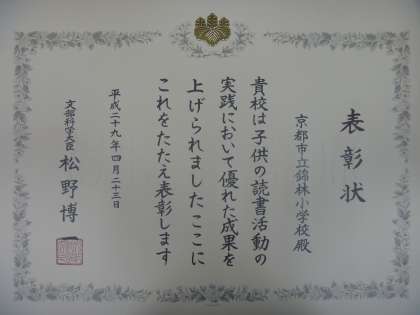 表彰状
京都市立錦林小学校殿
貴校は子供の読書活動の
実践において優れた成果を
上げられましたここに
これをたたえ表彰します
平成二十九年四月二十三日
文部科学大臣 松野博一